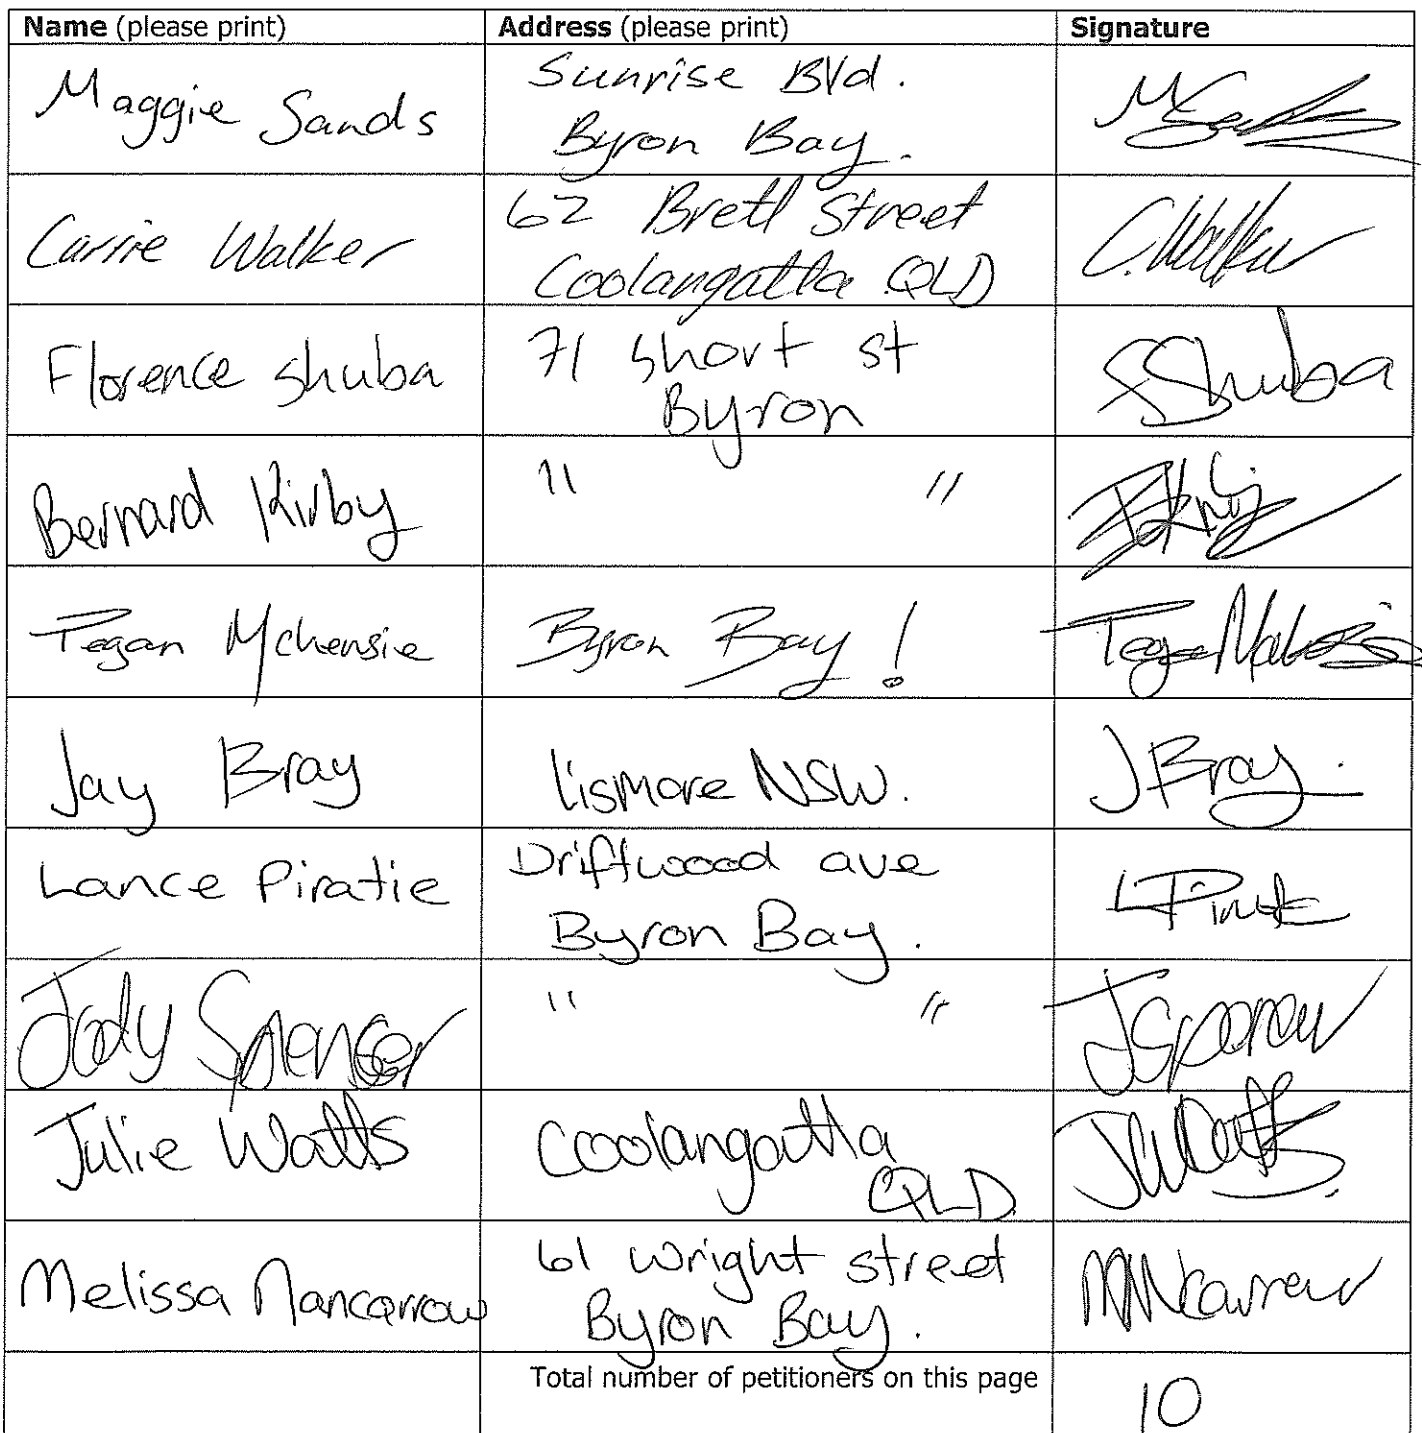 Name (please print) Address (please print) Signature
Maggie Sands Sunrise Blvd. MSands
Byron Bay.
Carrie Walker 62 Brett Street C.Walker
Coolangatta QLD
Florence Shuba 71 Short st FShuba
Byron
Bernard Kirby " " BKirby
Tegan Mckensie Byron Bay!
Jay Bray Lismore NSW. J Bray.
Lance Piratie Driftwood ave
Byron Bay.
Jody Spencer " "
Julie Watts Coolangatta JWatts
QLD
Melissa Nancarrow 61 Wright street MNancarrow
Byron Bay.
Total number of petitioners on this page 10